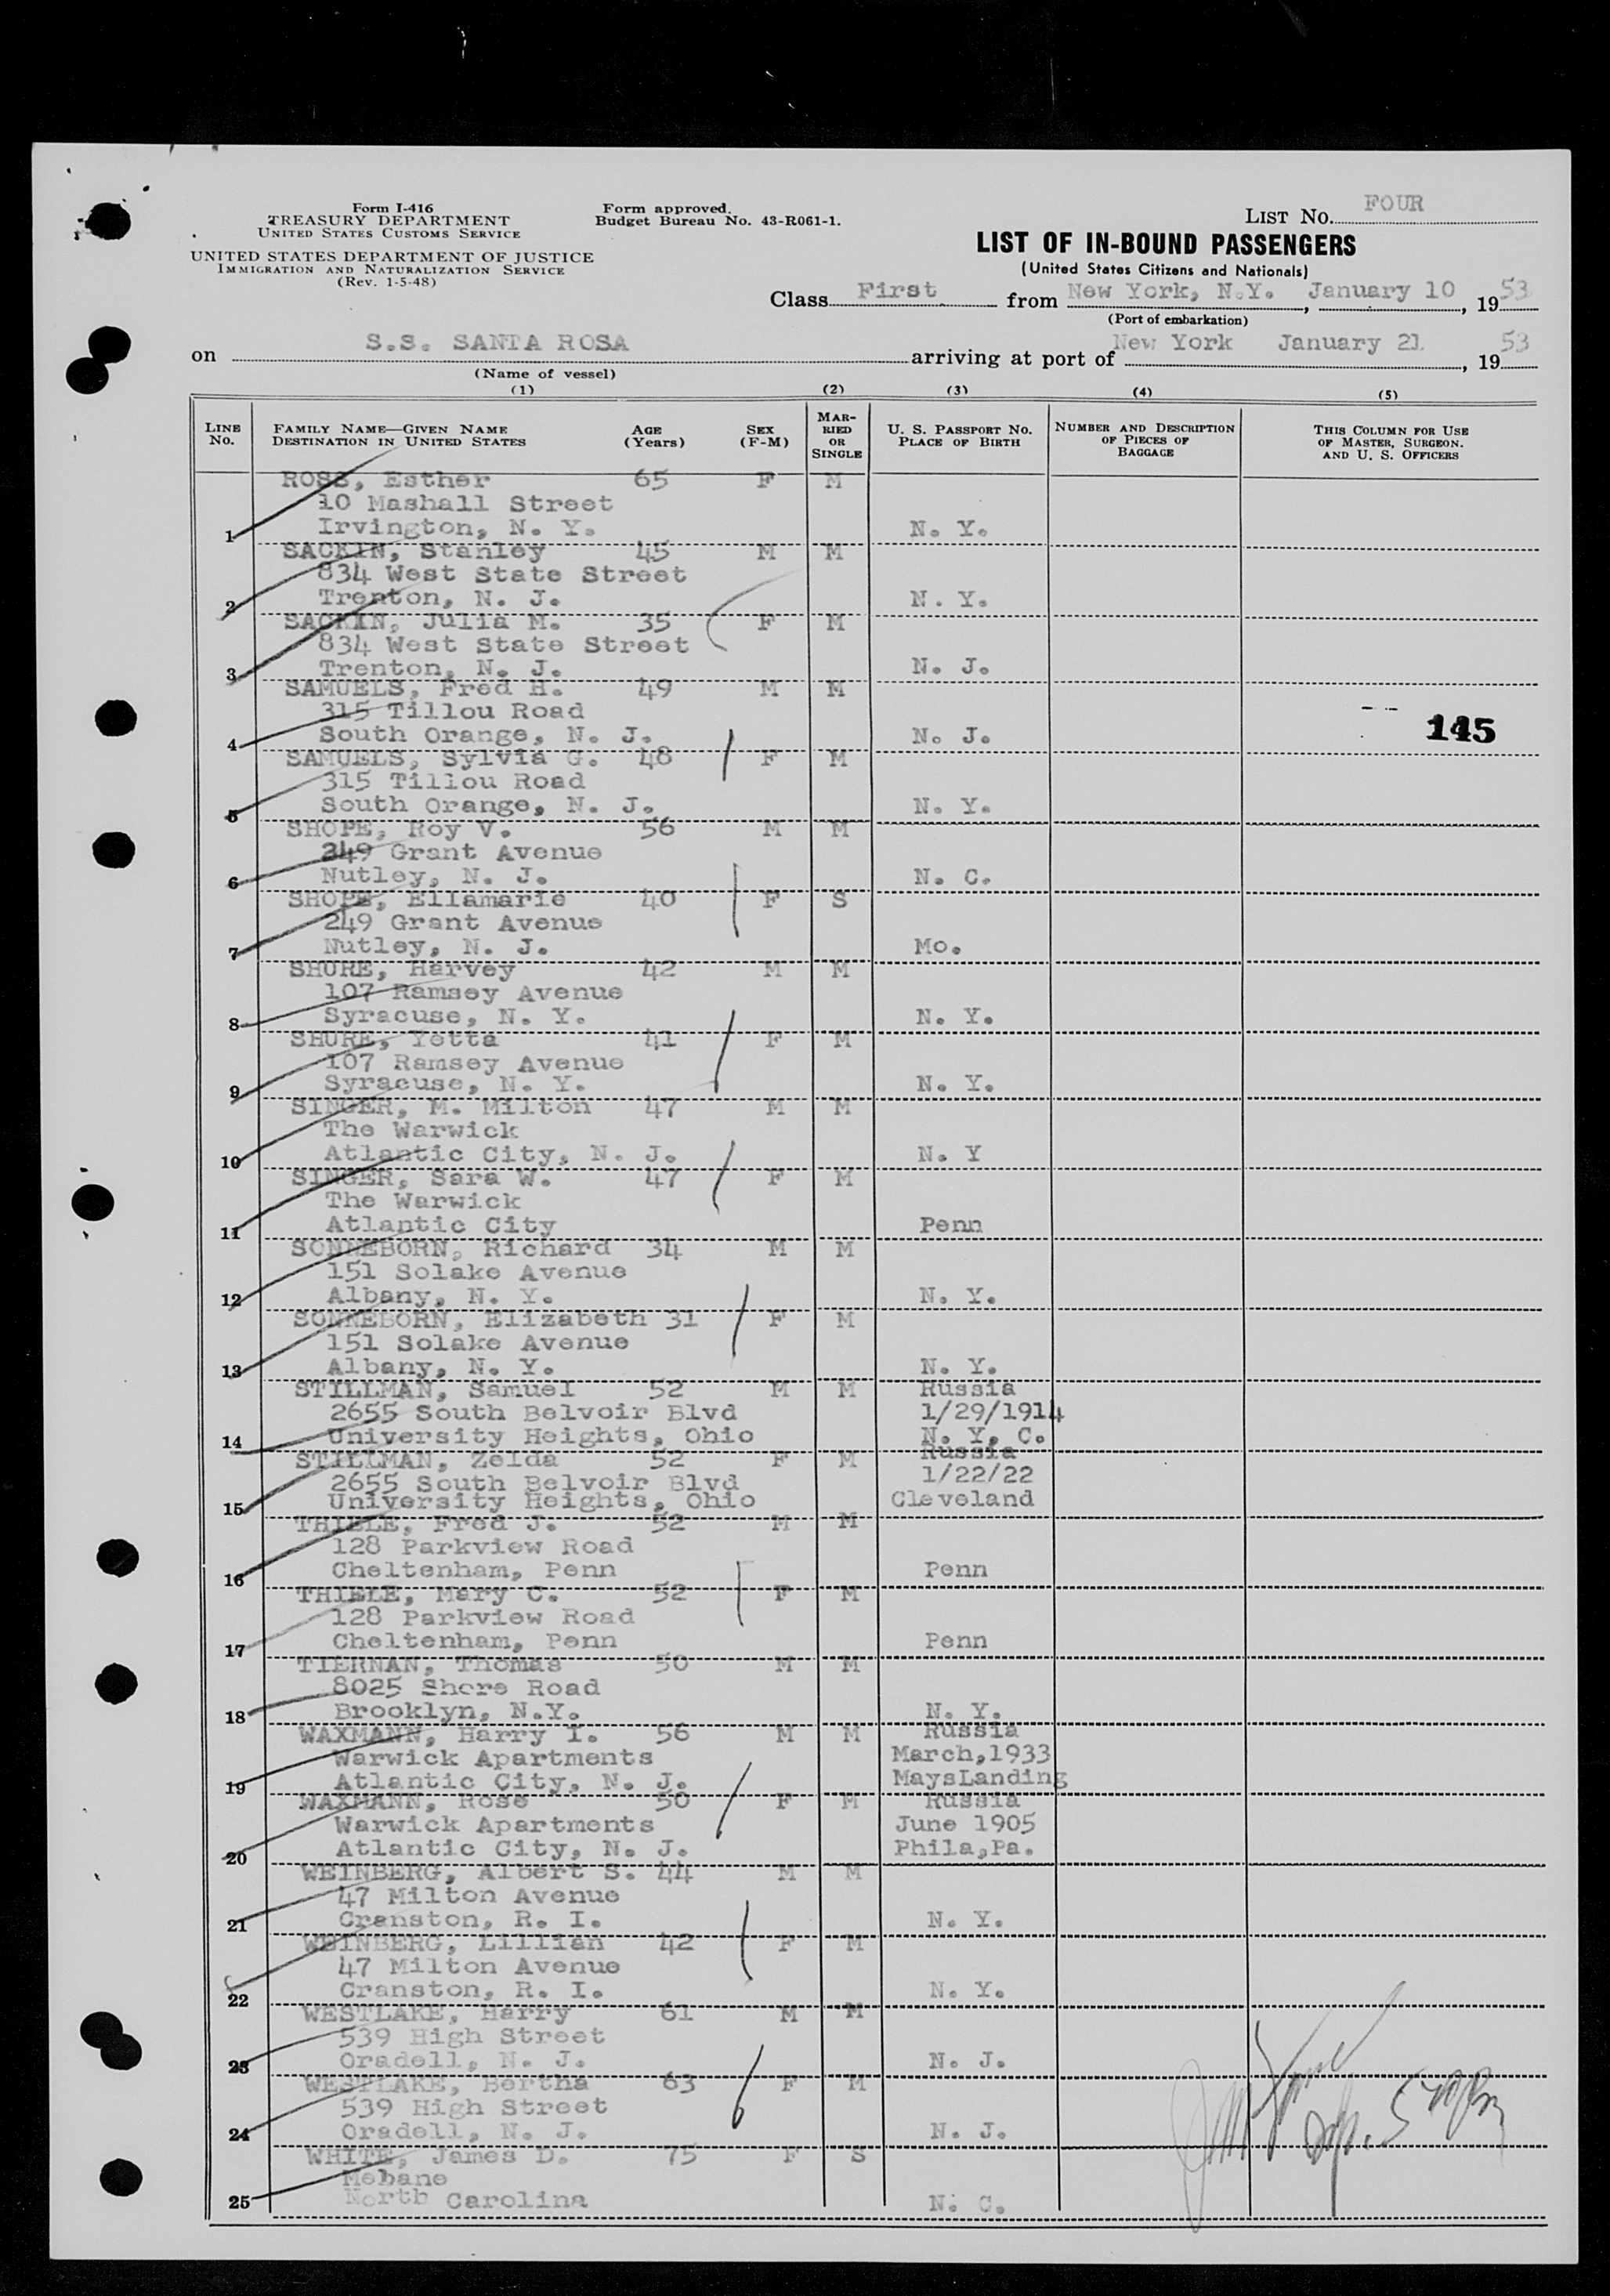 Form I-416
TREASURY DEPARTMENT
UNITED STATES CUSTOMS SERVICE
UNITED STATES DEPARTMENT OF JUSTICE
IMMIGRATION AND NATURALIZATION SERVICE
(Rev. 1-5-48)
Form approved.
Budget Bureau No. 43-R061-1.
LIST NO. FOUR
LIST OF IN-BOUND PASSENGERS
(United States Citizens and Nationals)
Class First from New York, N.Y. , January 10 , 19 53
(Port of embarkation)
on S.S. SANTA ROSA arriving at port of New York January 21 , 19 53
(Name of vessel)
(1) (2) (3) (4) (5)
LINE NO. FAMILY NAME—GIVEN NAME DESTINATION IN UNITED STATES AGE (Years) SEX (F-M) MARRIED OR SINGLE U. S. PASSPORT NO. PLACE OF BIRTH NUMBER AND DESCRIPTION OF PIECES OF BAGGAGE THIS COLUMN FOR USE OF MASTER, SURGEON. AND U. S. OFFICERS
ROSS, Esther 65 F M
10 Mashall Street
1 Irvington, N. Y. N. Y.
SACKIN, Stanley 45 M M
834 West State Street
2 Trenton, N. J. N. Y.
SACKIN, Julia M. 35 F M
834 West State Street
3 Trenton, N. J. N. J.
SAMUELS, Fred H. 49 M M
315 Tillou Road
145
4 South Orange, N. J. N. J.
SAMUELS, Sylvia G. 48 F M
315 Tillou Road
5 South Orange, N. J. N. Y.
SHOPE, Roy V. 56 M M
249 Grant Avenue
6 Nutley, N. J. N. C.
SHOPE, Ellamarie 40 F S
249 Grant Avenue
7 Nutley, N. J. Mo.
SHURE, Harvey 42 M M
107 Ramsey Avenue
8 Syracuse, N. Y. N. Y.
SHURE, Yetta 41 F M
107 Ramsey Avenue
9 Syracuse, N. Y. N. Y.
SINGER, M. Milton 47 M M
The Warwick
10 Atlantic City, N. J. N. Y
SINGER, Sara W. 47 F M
The Warwick
11 Atlantic City Penn
SONNEBORN, Richard 34 M M
151 Solake Avenue
12 Albany, N. Y. N. Y.
SONNEBORN, Elizabeth 31 F M
151 Solake Avenue
13 Albany, N. Y. N. Y.
STILLMAN, Samuel 52 M M Russia
2655 South Belvoir Blvd 1/29/1914
14 University Heights, Ohio N. Y. C.
STILLMAN, Zelda 52 F M Russia
2655 South Belvoir Blvd 1/22/22
15 University Heights, Ohio Cleveland
THIELE, Fred J. 52 M M
128 Parkview Road
16 Cheltenham, Penn Penn
THIELE, Mary C. 52 F M
128 Parkview Road
17 Cheltenham, Penn Penn
TIERNAN, Thomas 50 M M
8025 Shore Road
18 Brooklyn, N.Y. N. Y.
WAXMANN, Harry I. 56 M M Russia
Warwick Apartments March,1933
19 Atlantic City, N. J. MaysLanding
WAXMANN, Rose 50 F M Russia
Warwick Apartments June 1905
20 Atlantic City, N. J. Phila,Pa.
WEINBERG, Albert S. 44 M M
47 Milton Avenue
21 Cranston, R. I. N. Y.
WEINBERG, Lillian 42 F M
47 Milton Avenue
22 Cranston, R. I. N. Y.
WESTLAKE, Harry 61 M M
539 High Street
23 Oradell, N. J. N. J.
WESTLAKE, Bertha 63 F M
539 High Street
24 Oradell, N. J. N. J.
WHITE, James D. 75 F S
Mebane
25 North Carolina N. C.